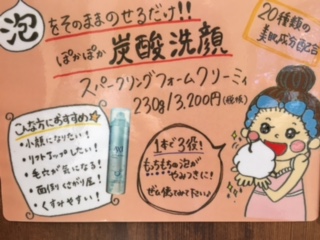 泡をそのままのせるだけ!!
ぽかぽか 炭酸洗顔
20種類の
美肌成分配合
スパークリングフォームクリーミィ
230g/3,200円(税抜)
こんな方におすすめ☆
・小顔になりたい!
・リフトアップしたい!
・毛穴が気になる!
・面倒くさがり屋!
・くすみやすい!
1本で3役!
もっちもちの泡が
やみつきに!
ぜひ使ってみて下さい♪